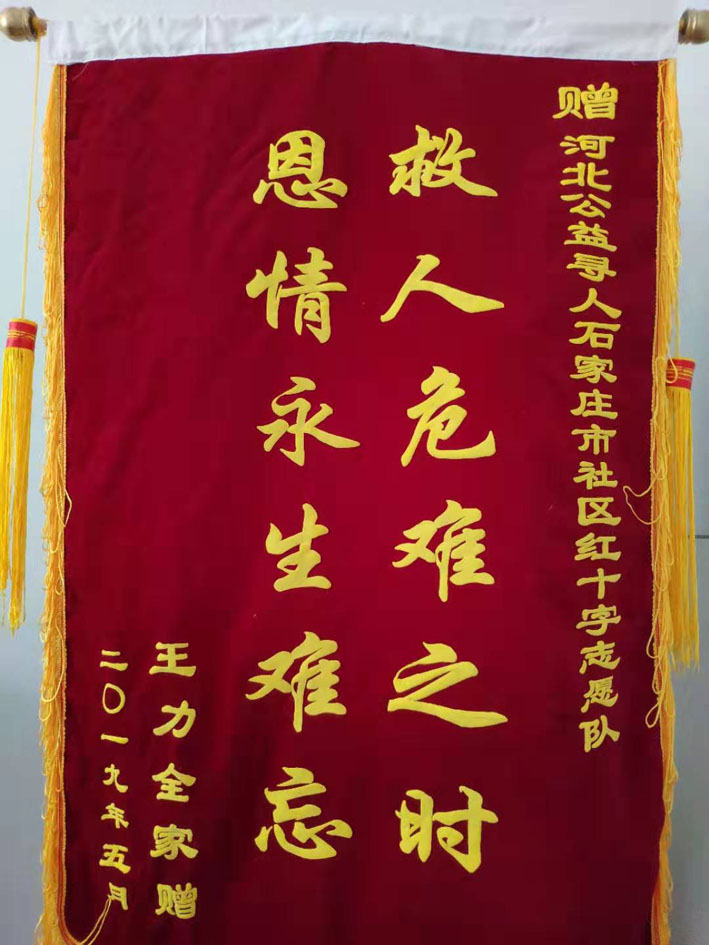 赠河北公益寻人石家庄市社区红十字志愿队
救人危难之时
恩情永生难忘
王力全家赠
二〇一九年五月